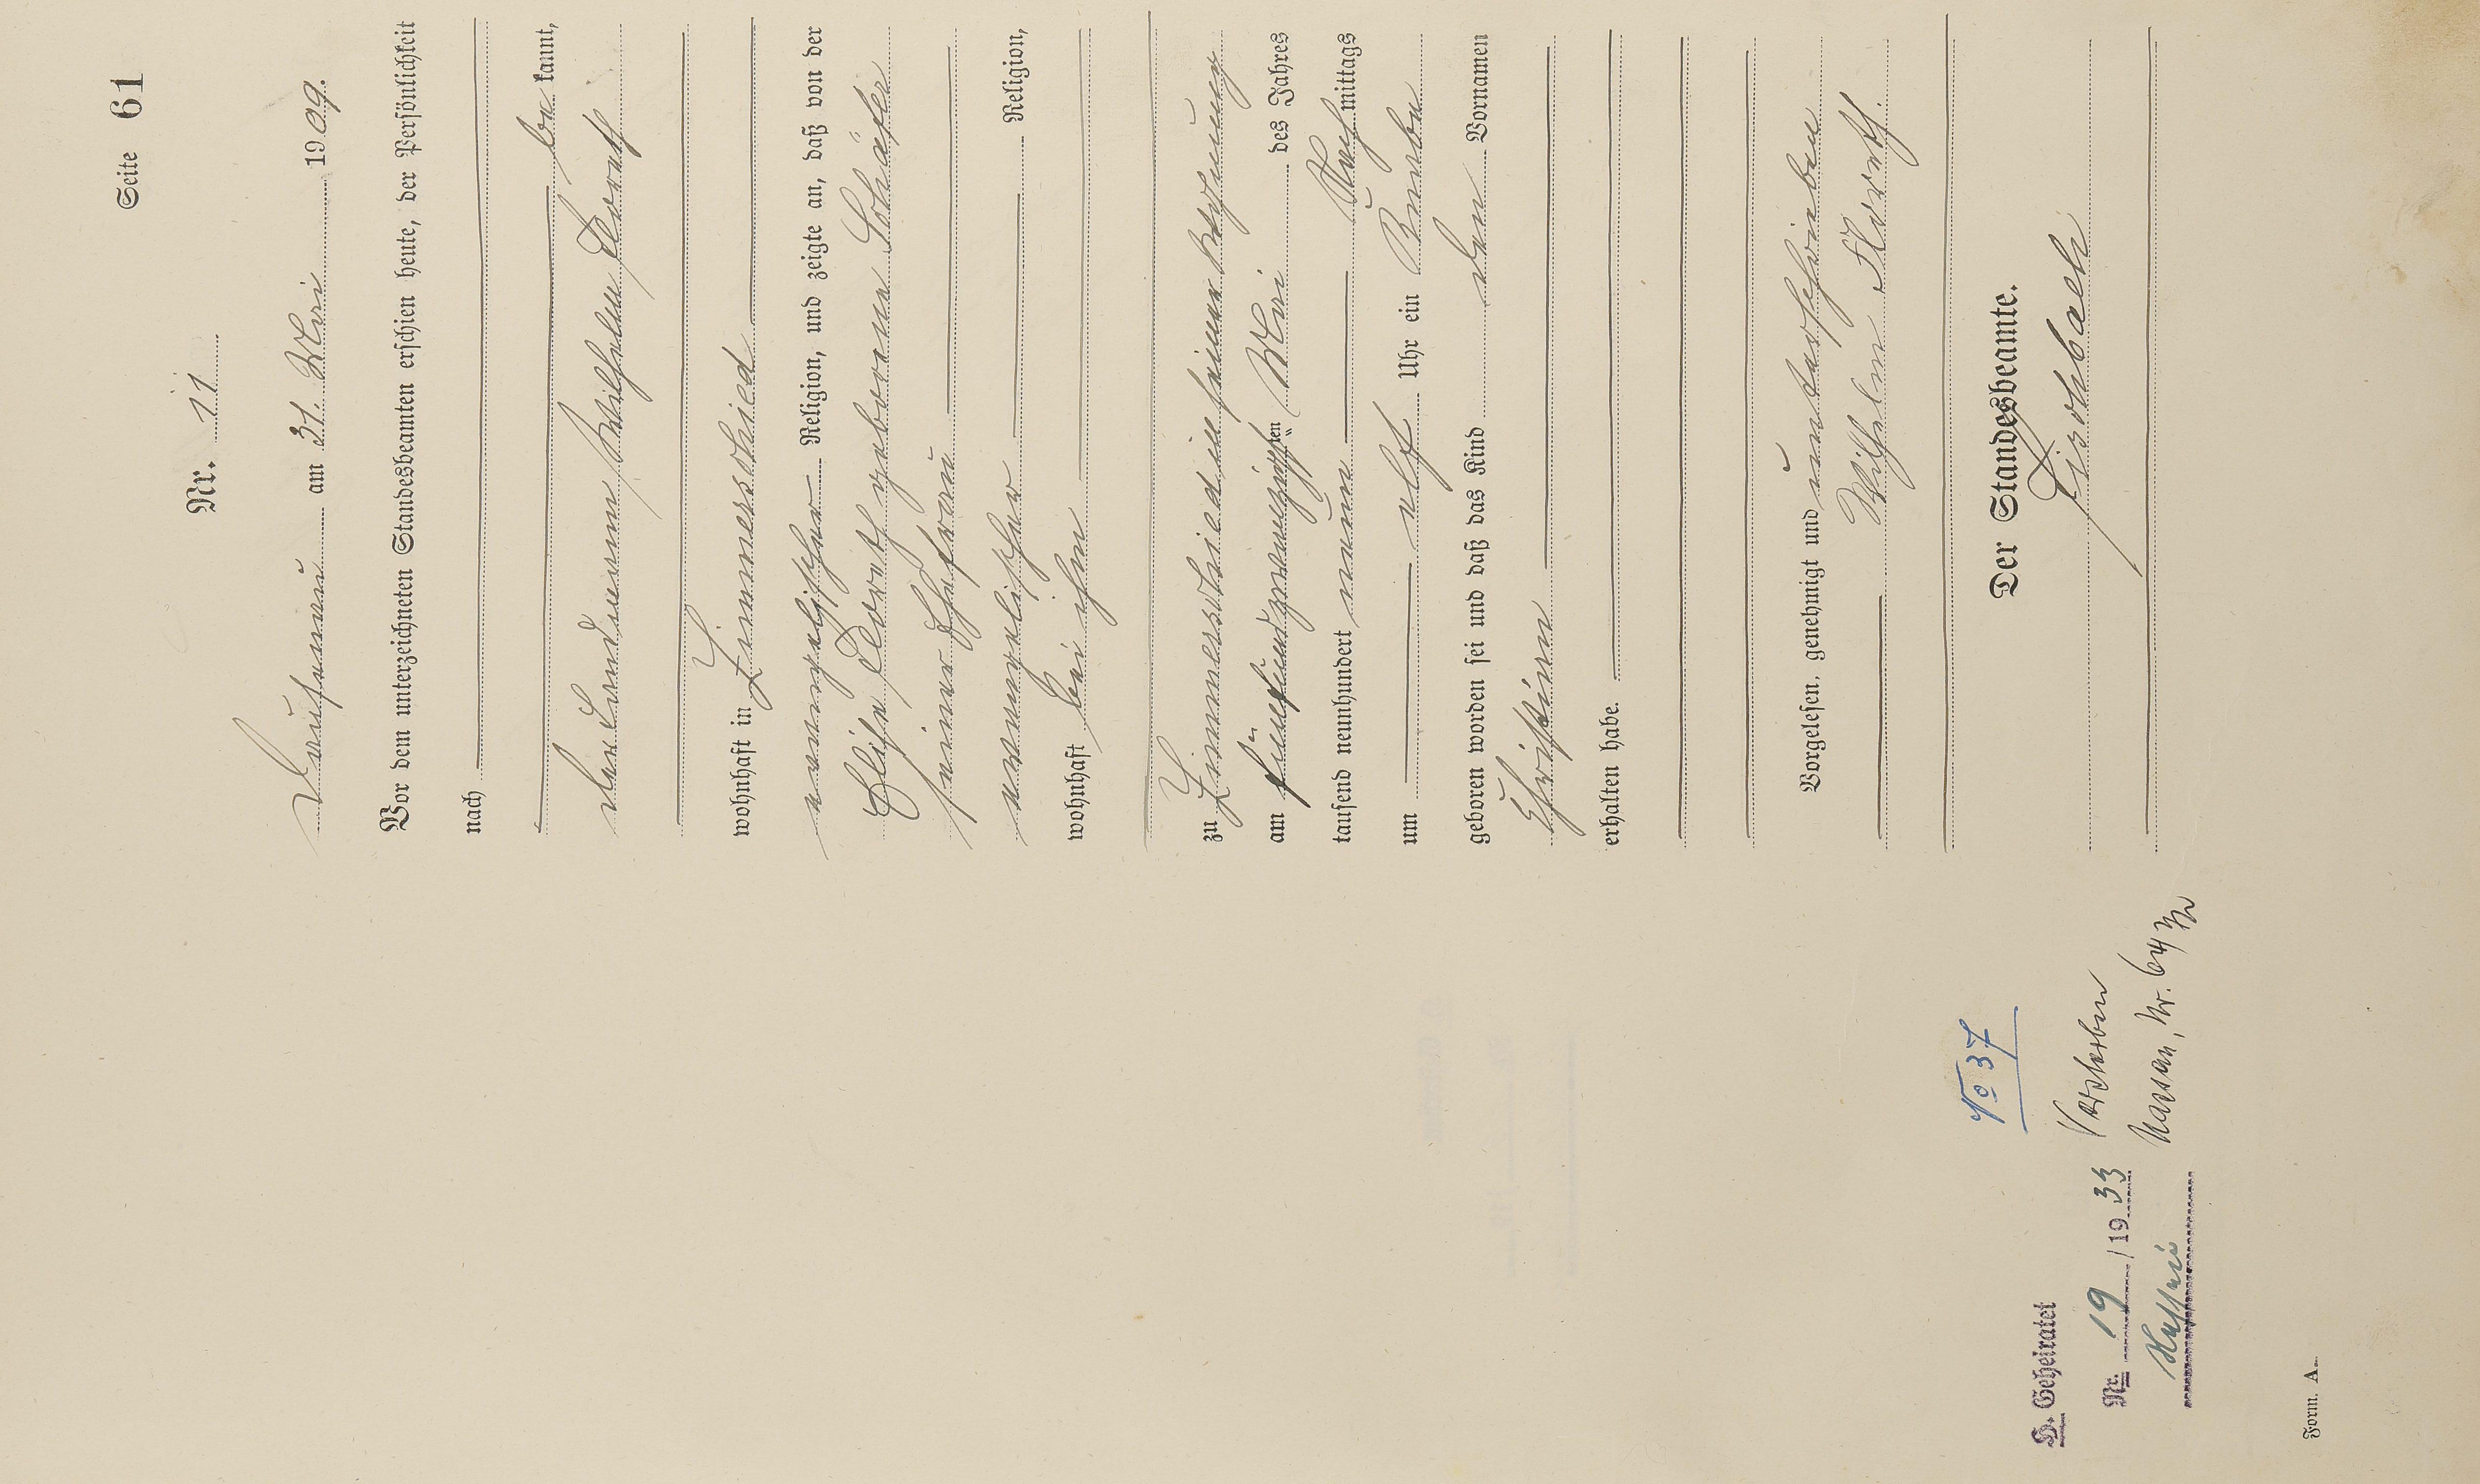 Seite 61
Nr. 11
Dausenau am 31. Mai 1909.
Vor dem unterzeichneten Standesbeamten erschien heute, der Persönlichkeit
nach
be kannt,
der Landmann Wilhelm Florath
wohnhaft in Zimmerschied
evangelischer Religion, und zeigte an, daß von der
Elise Florath geborene Schäfer
seiner Ehefrau
evangelischer Religion,
wohnhaft bei ihm
zu Zimmerschied in seiner Wohnung
am fünfundzwanzigsten Mai des Jahres
tausend neunhundert neun Nachmittags
um elf Uhr ein Knabe
geboren worden sei und daß das Kind den Vornamen
Christian
erhalten habe.
Vorgelesen, genehmigt und unterschrieben
Wilhelm Florath.
Der Standesbeamte.
No 37
H. Geheiratet
Nr. 19/1933
Verstorben
Nassau, Nr. 64
Form. A.